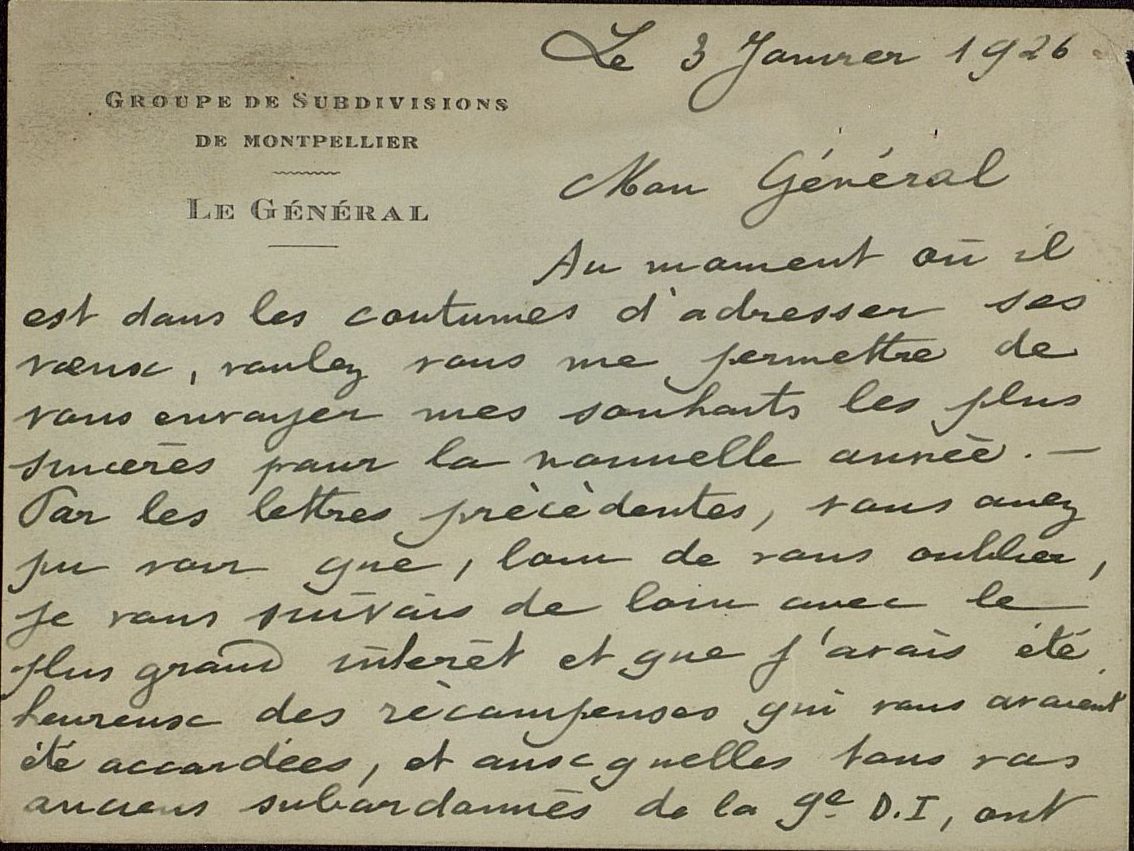 Le 3 Janvier 1926
GROUPE DE SUBDIVISIONS
DE MONTPELLIER
LE GÉNÉRAL
Mon Général
Au moment où il
est dans les coutumes d'adresser ses
vœux, voulez vous me permettre de
vous envoyer mes souhaits les plus
sincères pour la nouvelle année. —
Par les lettres précédentes, vous avez
pu voir que, loin de vous oublier,
je vous suivais de loin avec le
plus grand intérêt et que j'avais été
heureux des récompenses qui vous avaient
été accordées, et auxquelles tous vos
anciens subordonnés de la 9e D.I, ont